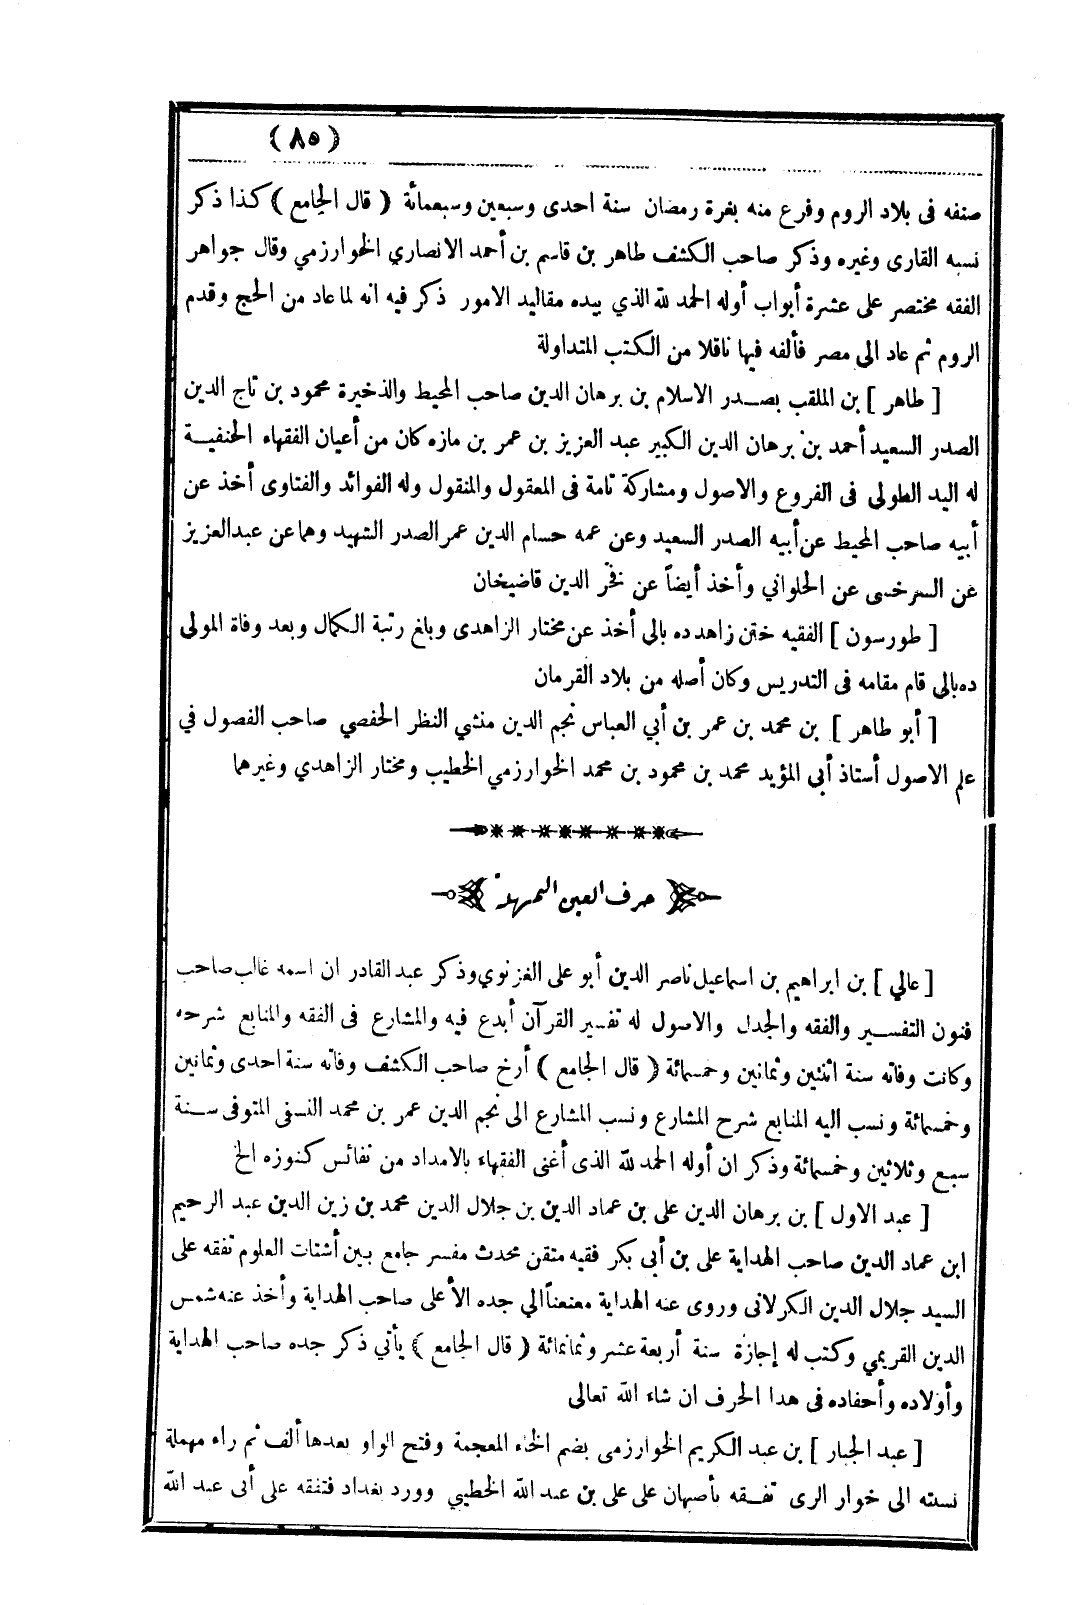 (٨٥)
صنفه فى بلاد الروم وفرع منه بغرة رمضان سنة احدى وسبعين وسبعمائة ( قال الجامع ) كذا ذكر
نسبه القارى وغيره وذكر صاحب الكشف طاهر بن قاسم بن أحمد الانصاري الخوارزمي وقال جواهر
الفقه مختصر على عشرة أبواب أوله الحمد لله الذي بيده مقاليد الامور ذكر فيه انه لما عاد من الحج وقدم
الروم ثم عاد الى مصر فألفه فيها ناقلا من الكتب المتداولة
[ طاهر ] بن الملقب بصدر الاسلام بن برهان الدين صاحب المحيط والذخيرة محمود بن تاج الدين
الصدر السعيد أحمد بن برهان الدين الكبير عبد العزيز بن عمر بن مازه كان من أعيان الفقهاء الحنفية
له اليد الطولى فى الفروع والاصول ومشاركة تامة فى المعقول والمنقول وله الفوائد والفتاوى أخذ عن
أبيه صاحب المحيط عن أبيه الصدر السعيد وعن عمه حسام الدين عمر الصدر الشهيد وهما عن عبدالعزيز
عن السرخسى عن الحلواني وأخذ أيضاً عن فخر الدين قاضيخان
[ طورسون ] الفقيه ختن زاهد ده بالى أخذ عن مختار الزاهدى وبلغ رتبة الكمال وبعد وفاة المولى
ده بالى قام مقامه فى التدريس وكان أصله من بلاد القرمان
[ أبو طاهر ] بن محمد بن عمر بن أبي العباس نجم الدين منشي النظر الحفصي صاحب الفصول في
علم الاصول أستاذ أبى المؤيد محمد بن محمود بن محمد الخوارزمي الخطيب ومختار الزاهدي وغيرهما
حرف العين المهملة
[ عالي ] بن ابراهيم بن اسماعيل ناصر الدين أبو على الغزنوي وذكر عبد القادر ان اسمه غالب صاحب
فنون التفسير والفقه والجدل والاصول له تفسير القرآن أبدع فيه والمشارع فى الفقه والمنابع شرحه
وكانت وفاته سنة اثنتين وثمانين وخمسمائة ( قال الجامع ) أرخ صاحب الكشف وفاته سنة احدى وثمانين
وخمسمائة ونسب اليه المنابع شرح المشارع ونسب المشارع الى نجم الدين عمر بن محمد النسفى المتوفى سنة
سبع وثلاثين وخمسمائة وذكر ان أوله الحمد لله الذى أغنى الفقهاء بالامداد من نفائس كنوزه الخ
[ عبد الاول ] بن برهان الدين على بن عماد الدين بن جلال الدين محمد بن زين الدين عبد الرحيم
ابن عماد الدين صاحب الهداية على بن أبى بكر فقيه متقن محدث مفسر جامع بين أشتات العلوم تفقه على
السيد جلال الدين الكرلانى وروى عنه الهداية معنعناً الي جده الأعلى صاحب الهداية وأخذ عنه شمس
الدين القريمي وكتب له إجازة سنة أربعة عشر وثمانمائة ( قال الجامع ) يأتي ذكر جده صاحب الهداية
وأولاده وأحفاده فى هدا الحرف ان شاء الله تعالى
[ عبد الجبار ] بن عبد الكريم الخوارزمى بضم الخاء المعجمة وفتح الواو بعدها ألف ثم راء مهملة
نسبته الى خوار الرى تفقه بأصبهان على على بن عبد الله الخطيبي وورد بغداد فتفقه على أبى عبد الله